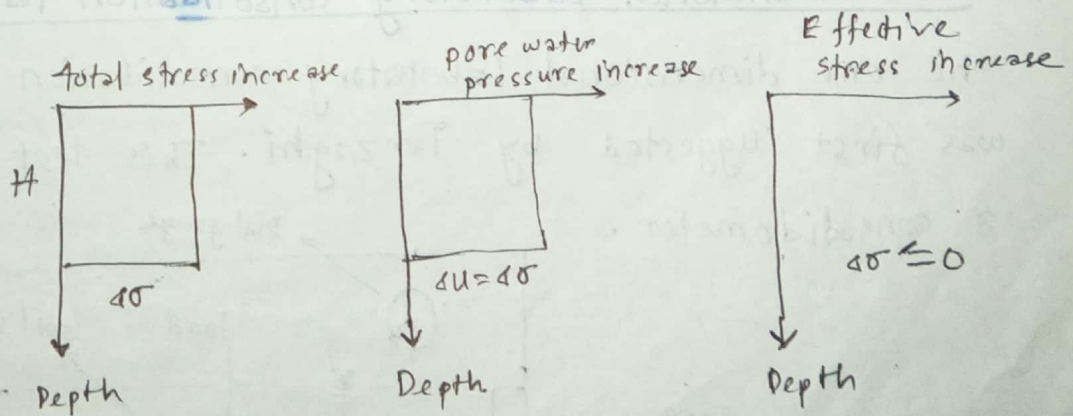 total stress increase
H
Δσ
Depth
pore water
pressure increase
Δu = Δσ
Depth
Effective
stress increase
Δσ' = 0
Depth